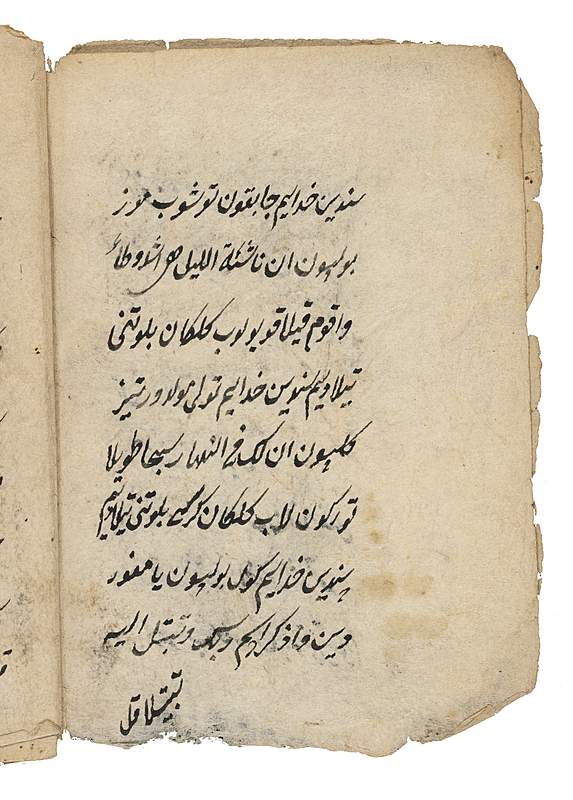 سندین خدایم جابقون توشوب موز
بولهون ان ناشئة الليل هى اشد وطأ
واقوم قيلا قویولوب کلکان بلوتنی
تیلادیم سندین خدایم تولی بولا ور تیز
کلهون ان لک فى النهار سبحا طويلا
تورکون لاب کلکان بلوتنی تیلادیم
سندین خدایم کول بولهون یا مغور
دین واذکر اسم ربک وتبتل اليه
تبتيلا قل